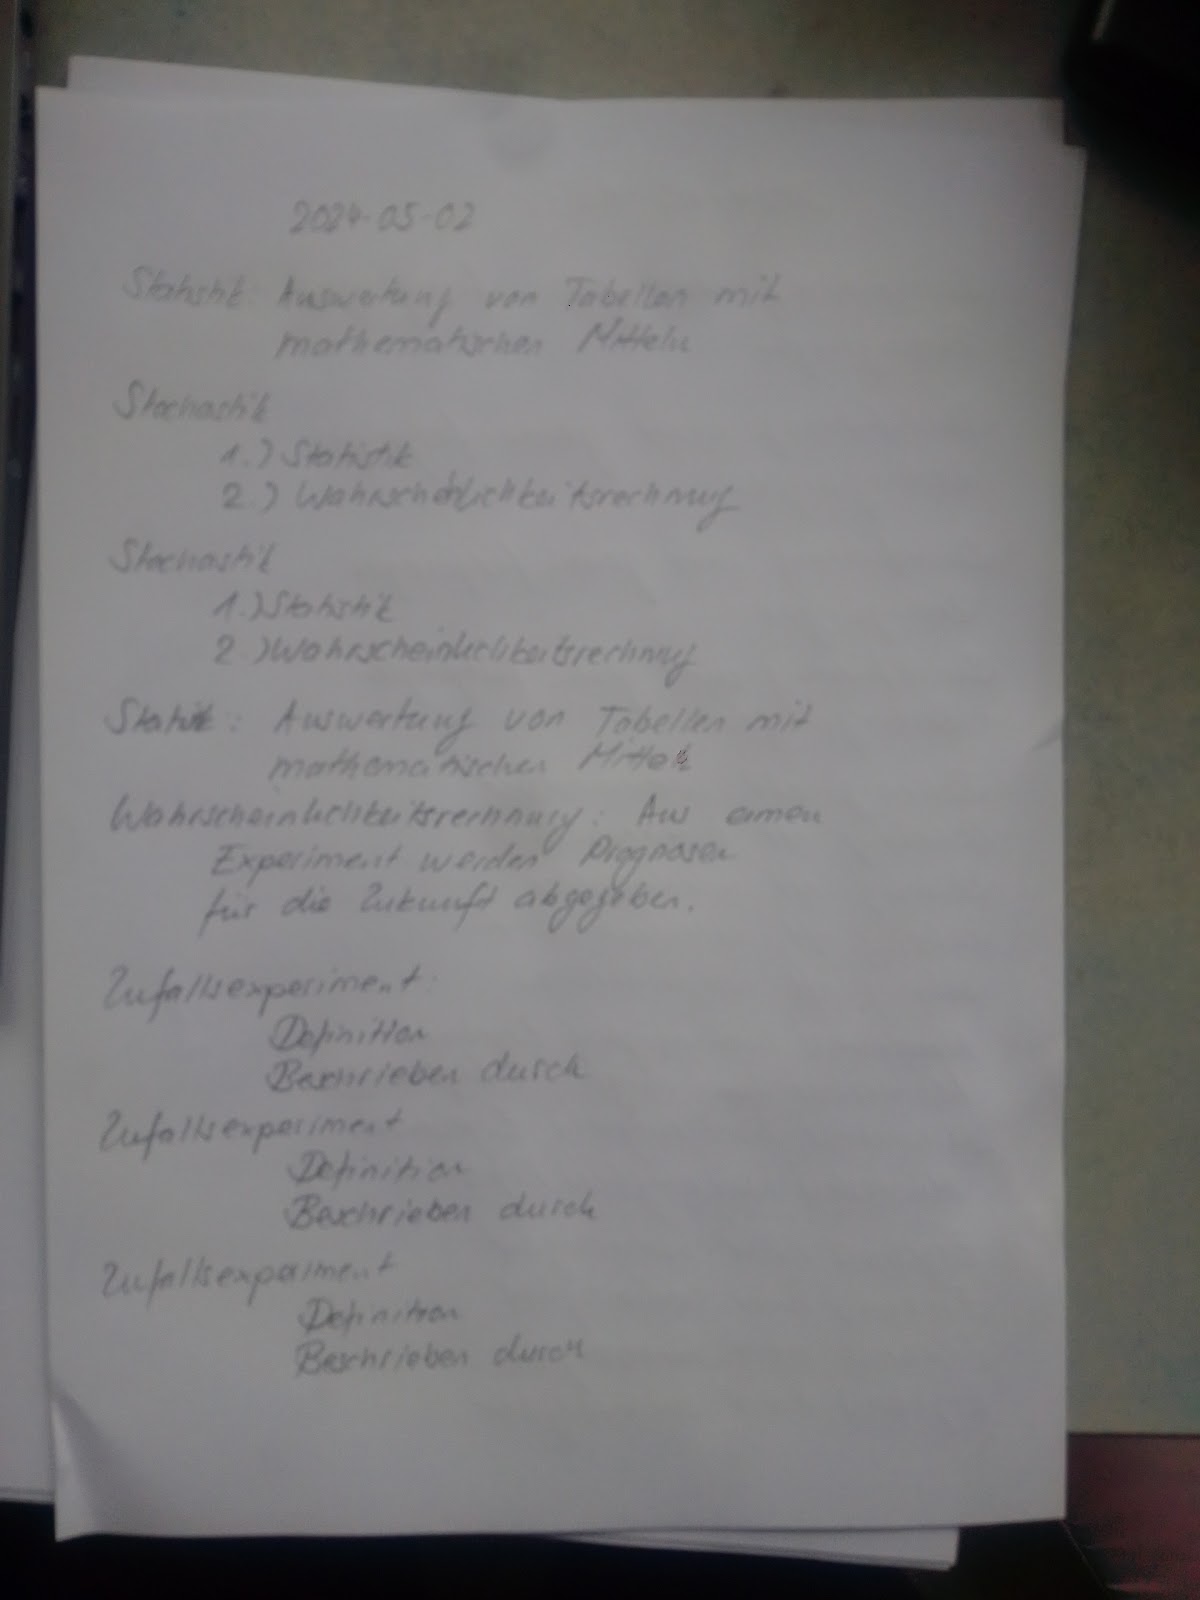 2024-05-02
Statistik Auswertung von Tabellen mit
mathematischen Mitteln
Stochastik
1.) Statistik
2.) Wahrscheinlichkeitsrechnung
Stochastik
1.) Statistik
2.) Wahrscheinlichkeitsrechnung
: Auswertung von Tabellen mit
mathematischen Mittel
Wahrscheinlichkeitsrechnung: Aus einem
Experiment werden Prognosen
für die Zukunft abgegeben.
Zufallsexperiment:
Definition
Beschrieben durch
Zufallsexperiment
Definition
Beschrieben durch
Zufallsexperiment
Definition
Beschrieben durch